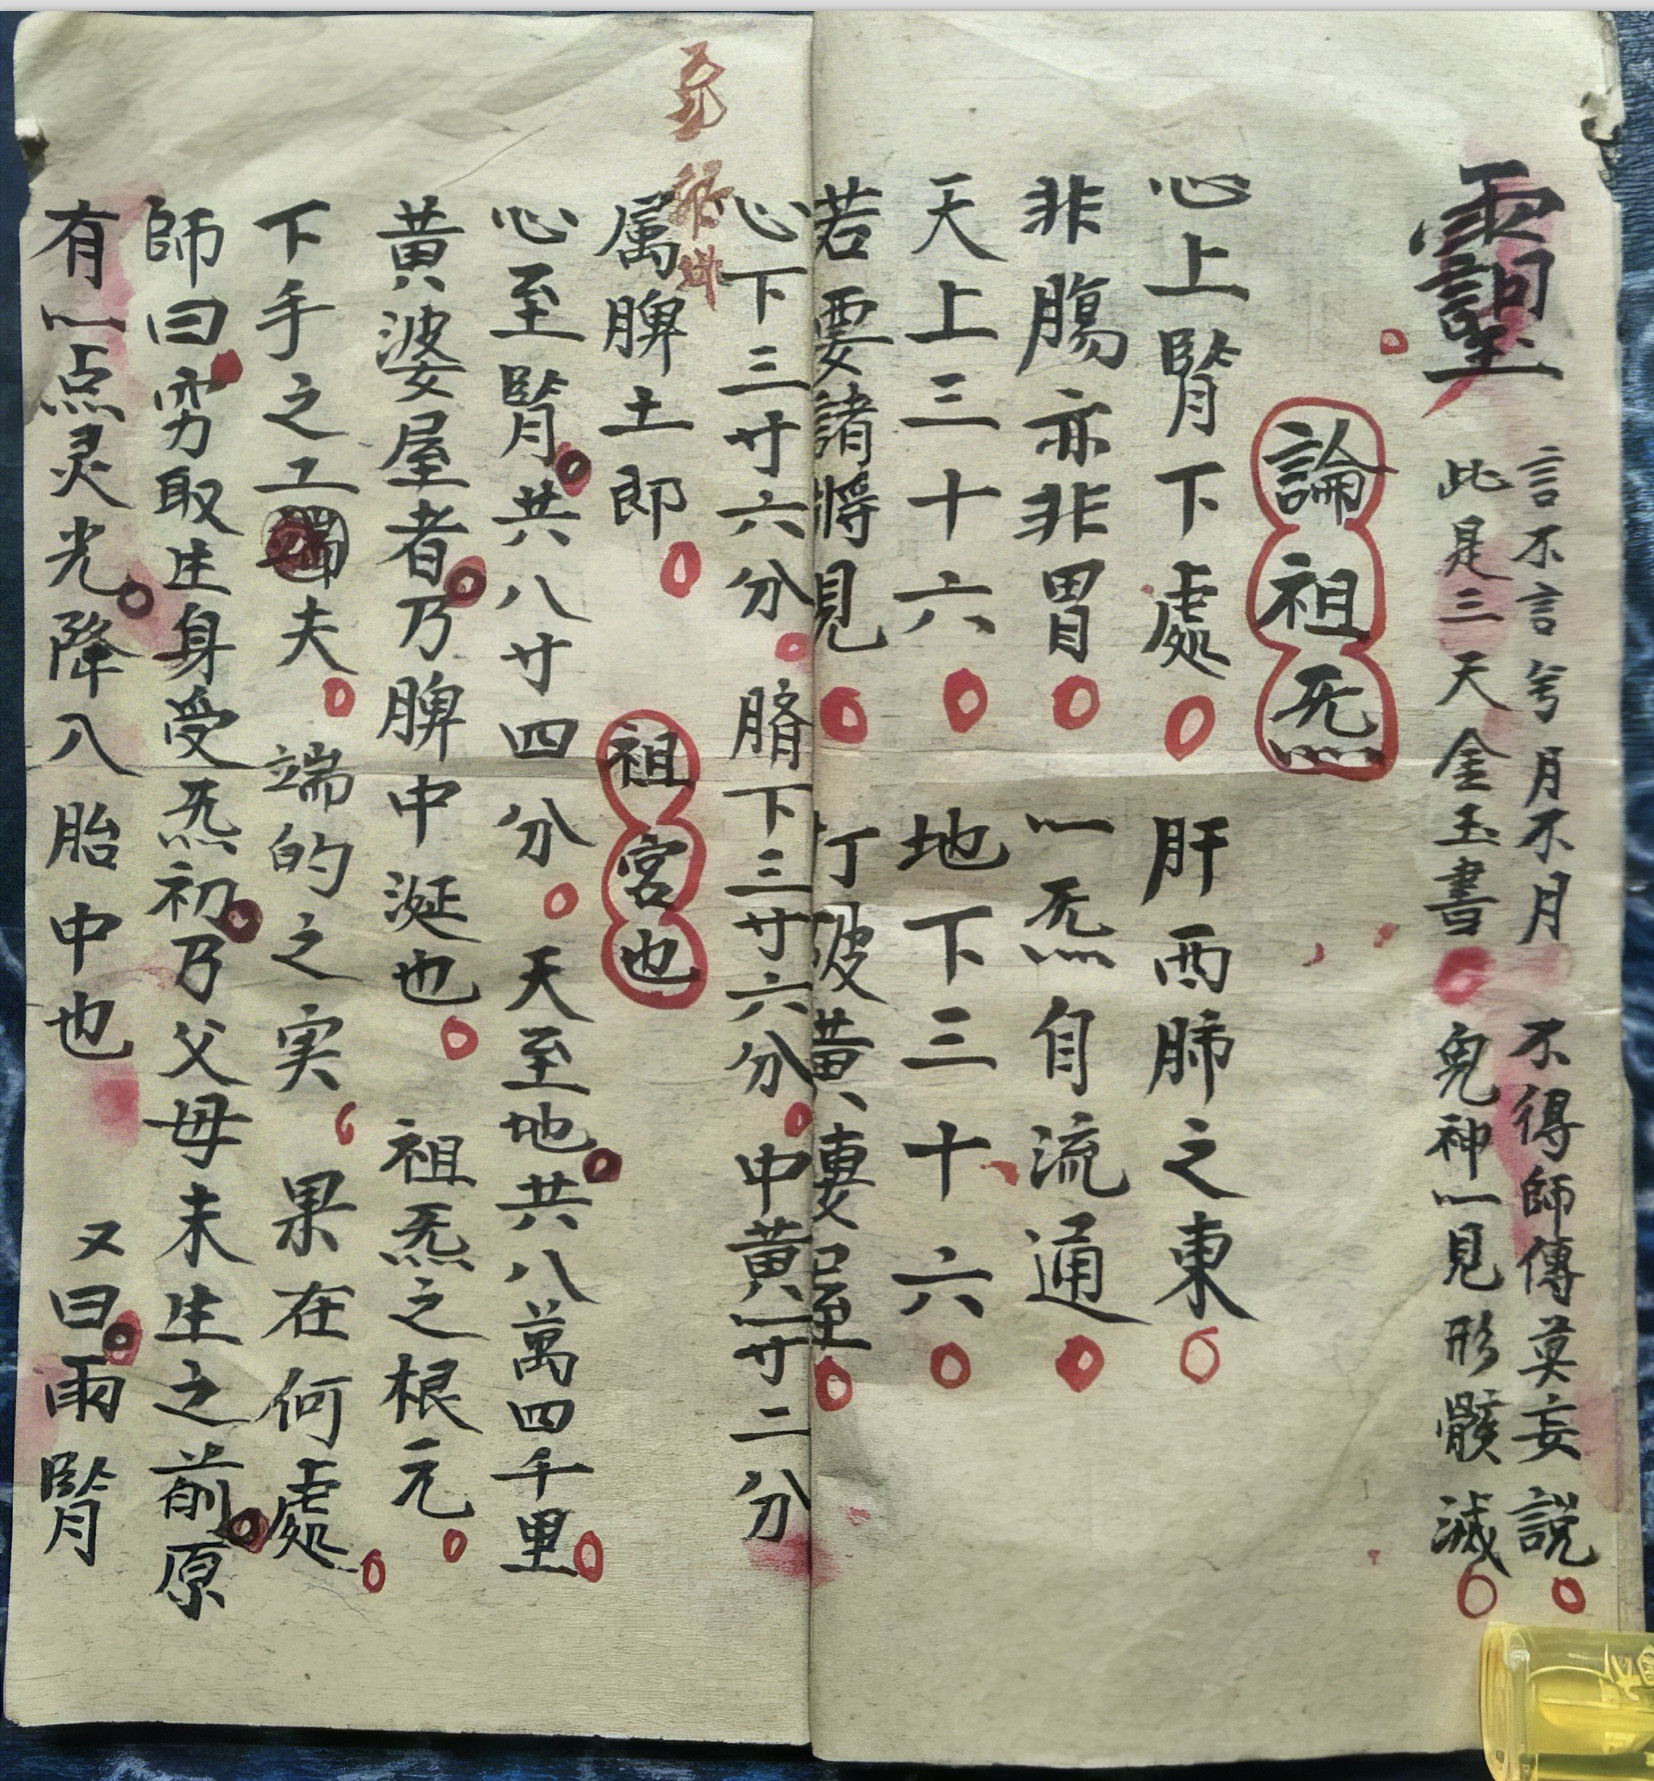 言不言兮月不月　不得師傳莫妄説
此是三天金玉書　鬼神一見形骸滅
論祖炁
心上腎下處　肝西肺之東
非腸亦非胃　一炁自流通
天上三十六　地下三十六
若要諸將見　打破黃婆屋
心下三寸六分　臍下三寸六分　中黃一寸二分
属脾土郎　祖宮也
心至腎共八寸四分　天至地共八萬四千里
黃婆屋者乃脾中涎也　祖炁之根元
下手之工夫　端的之実　果在何處
師曰穷取生身受炁初乃父母未生之前原
有一点灵光降八胎中也　又曰兩腎